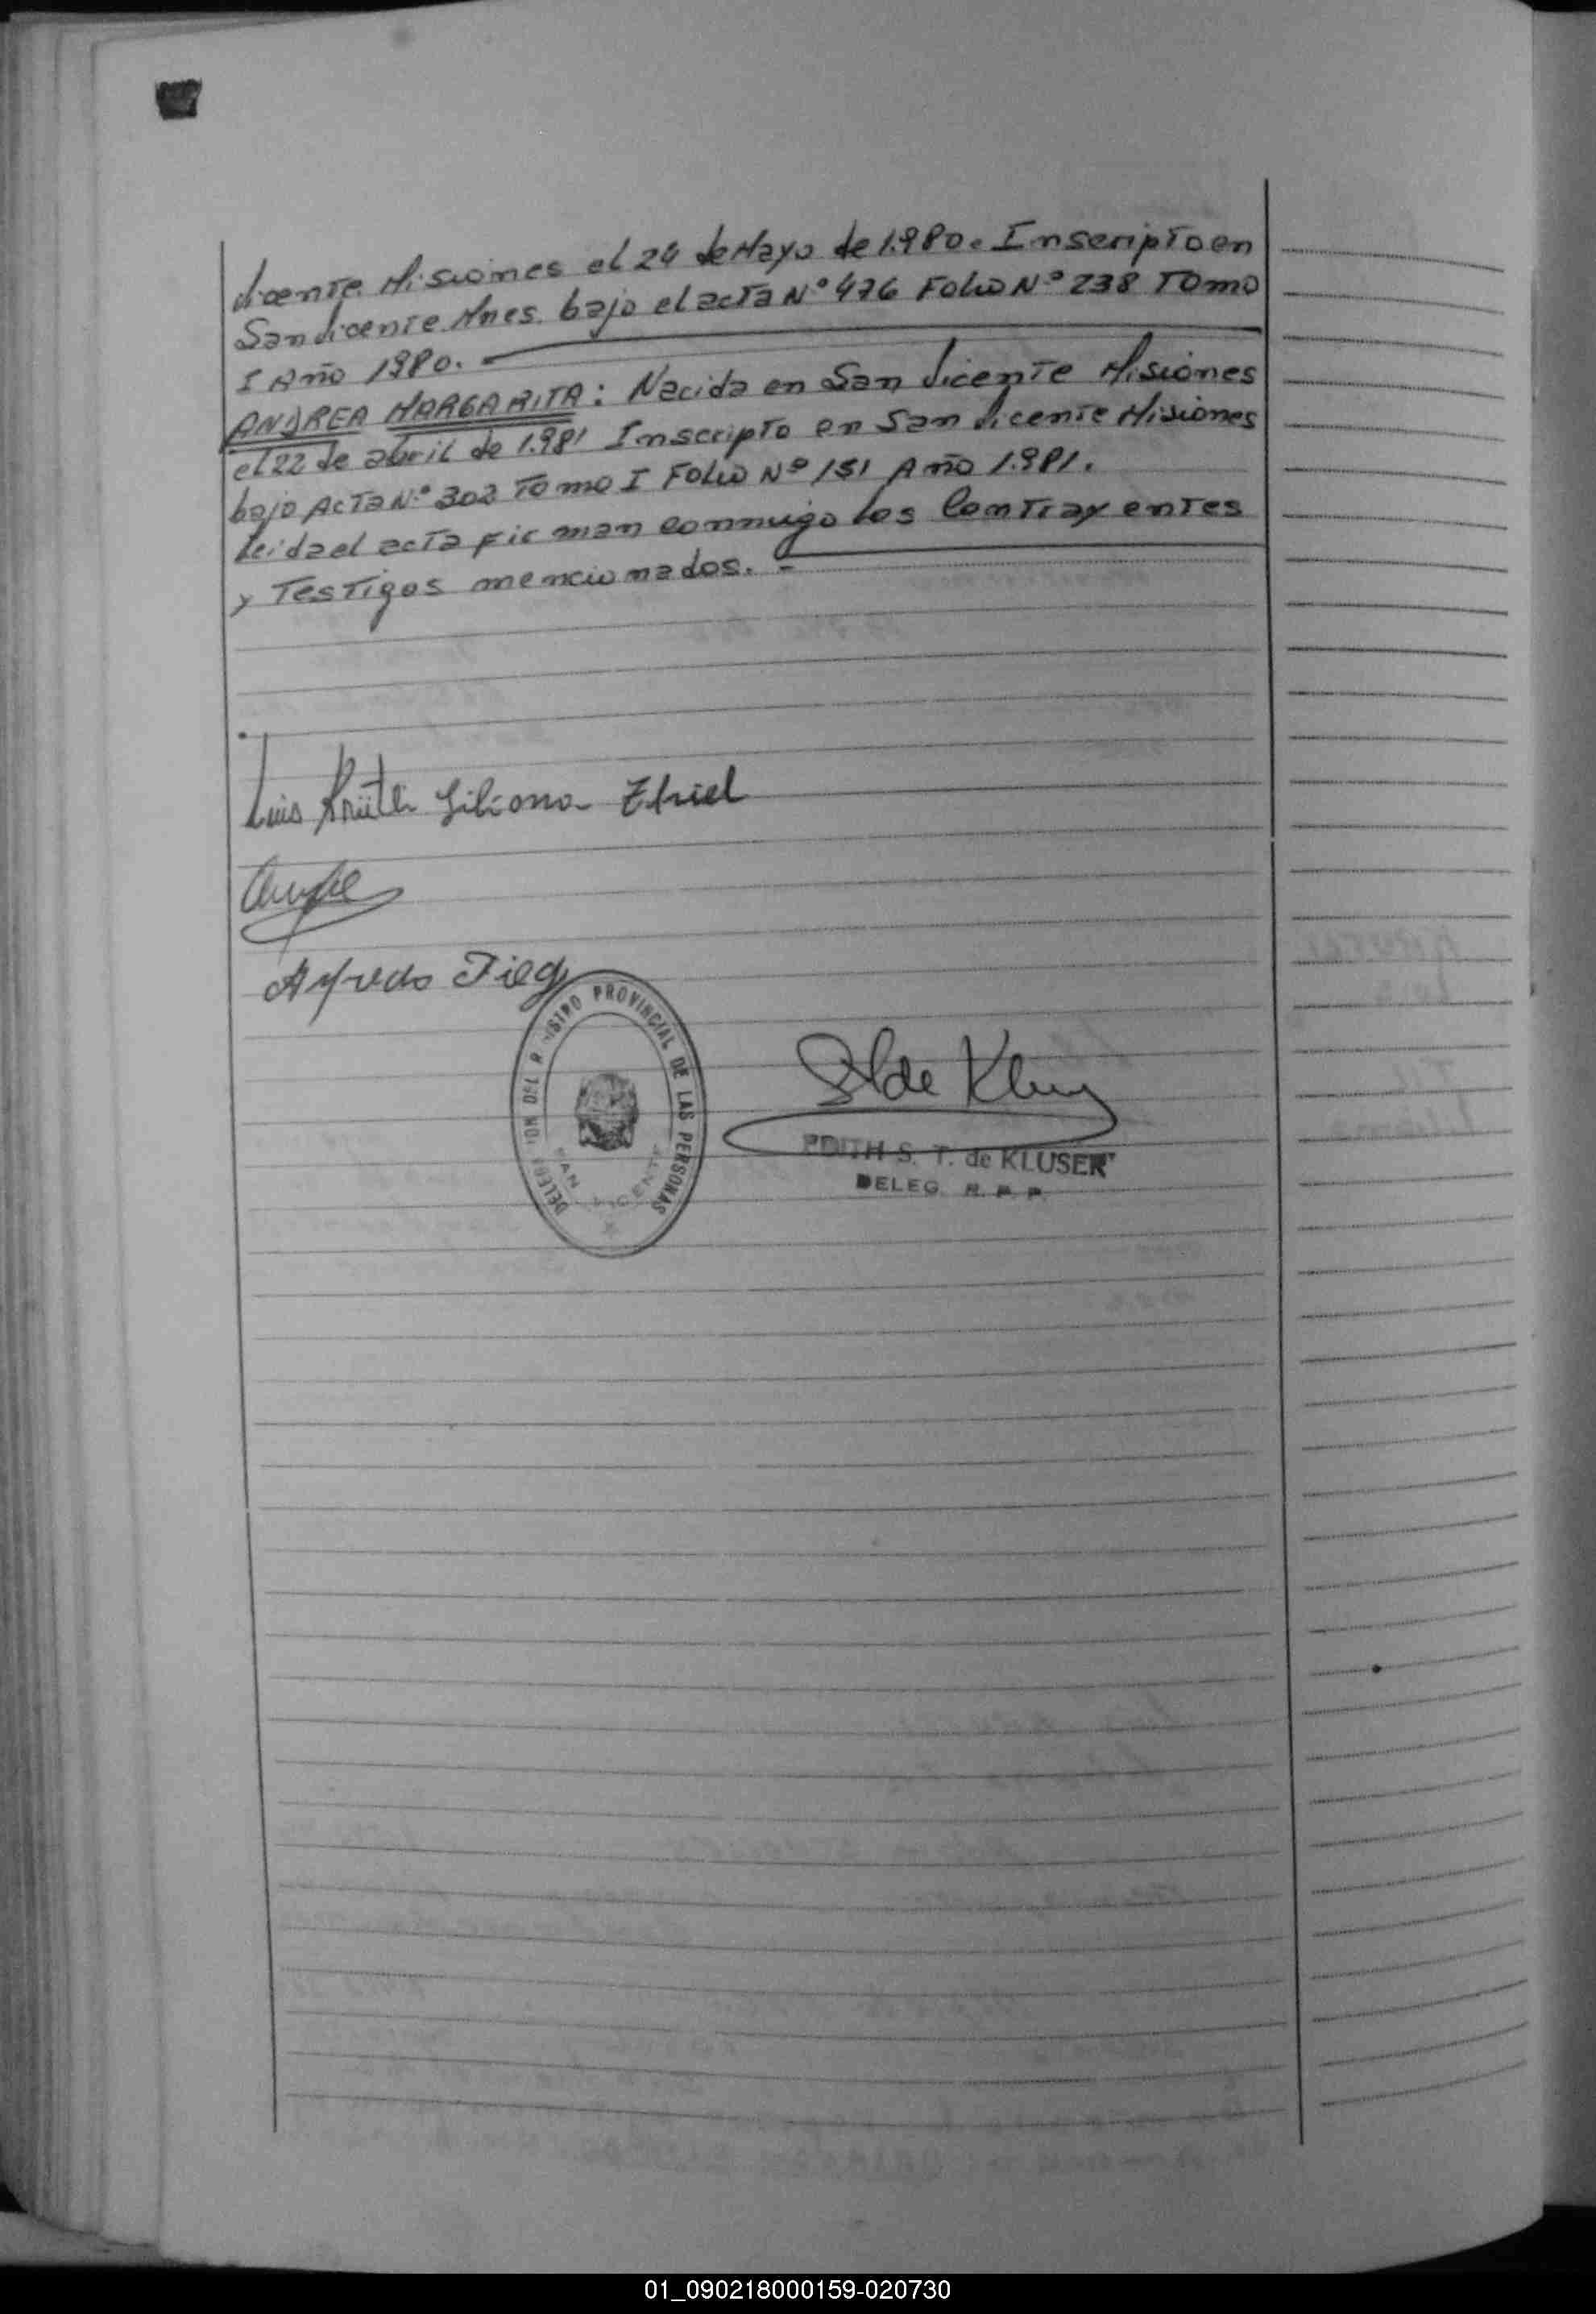 Vicente Misiones el 24 de Mayo de 1.980. Inscripto en
San Vicente Mnes. bajo el acta Nº 476 Folio Nº 238 Tomo
I Año 1980. -
ANDREA MARGARITA: Nacida en San Vicente Misiones
el 22 de abril de 1.981 Inscripto en San Vicente Misiones
bajo Acta Nº 302 Tomo I Folio Nº 151 Año 1.981.
Leida el acta firman conmigo los Contrayentes
y Testigos mencionados. -
Luis Liliana
Alfredo
REGISTRO PROVINCIAL DE LAS PERSONAS
SAN VICENTE
EDITH S. T. de KLUSER
DELEG. R. P. P.
01_090218000159-020730